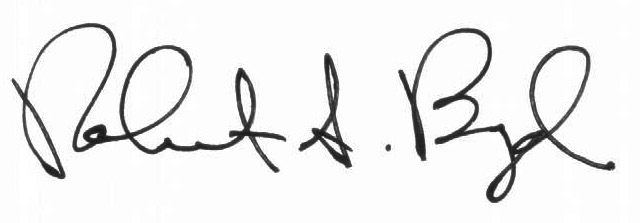 Robert S. Byrd